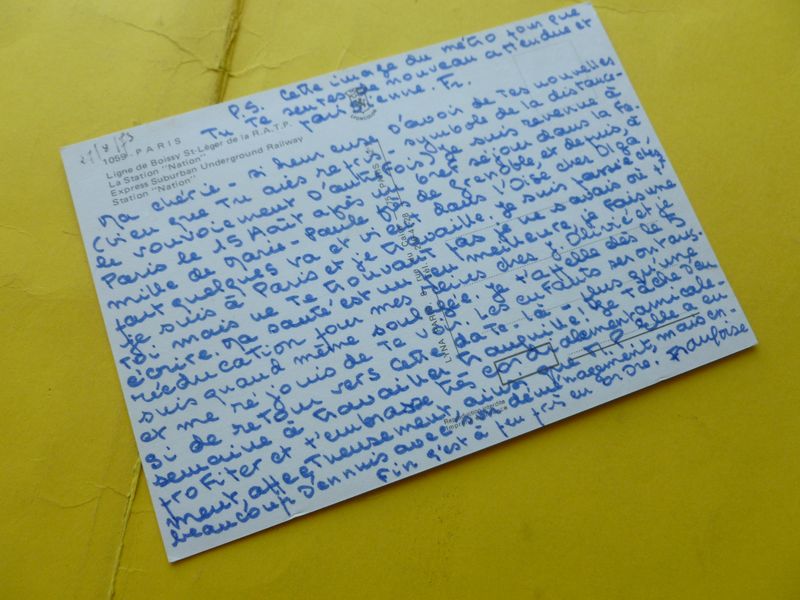 P.S. Cette image du métro pour que
Tu te sentes de nouveau attendue et
parisienne. Fr.
21/8/73
1059 - PARIS
Ligne de Boissy St-Léger de la R.A.T.P.
La Station "Nation"
Express Suburban Underground Railway
Station "Nation"
Ma chérie - Si heureuse D'avoir de tes nouvelles
bien que Tu aies retrouvé symbole de la distance
le vouvoiement D'autrefois, je suis revenue à
Paris le 15 Août après séjour dans la fa-
mille de Marie-Paule de Grenoble et depuis, à
fait quelques va et vient dans l'Oise chez
je suis à Paris et je travaille. Je suis passée chez
toi mais ne te trouvant pas je ne savais où t'
écrire. Ma santé est un peu meilleure, je fais une
rééducation pour mes chez J. Olivié et je
suis quand même soulagée. je t'attelle dès le 5
et me réjouis de te Les enfants seront aus-
si de retour vers cette date-là. Plus qu'une
semaine à travailler tranquille! Je tâche D'en
profiter et t'embrasse très cordialement amicale-
ment, affectueusement, elle a eu
beaucoup D'ennuis avec son déménagement, mais en-
fin c'est à peu près en ordre. Françoise
LYNA-PARIS
75 PARIS
Reproduction interdite